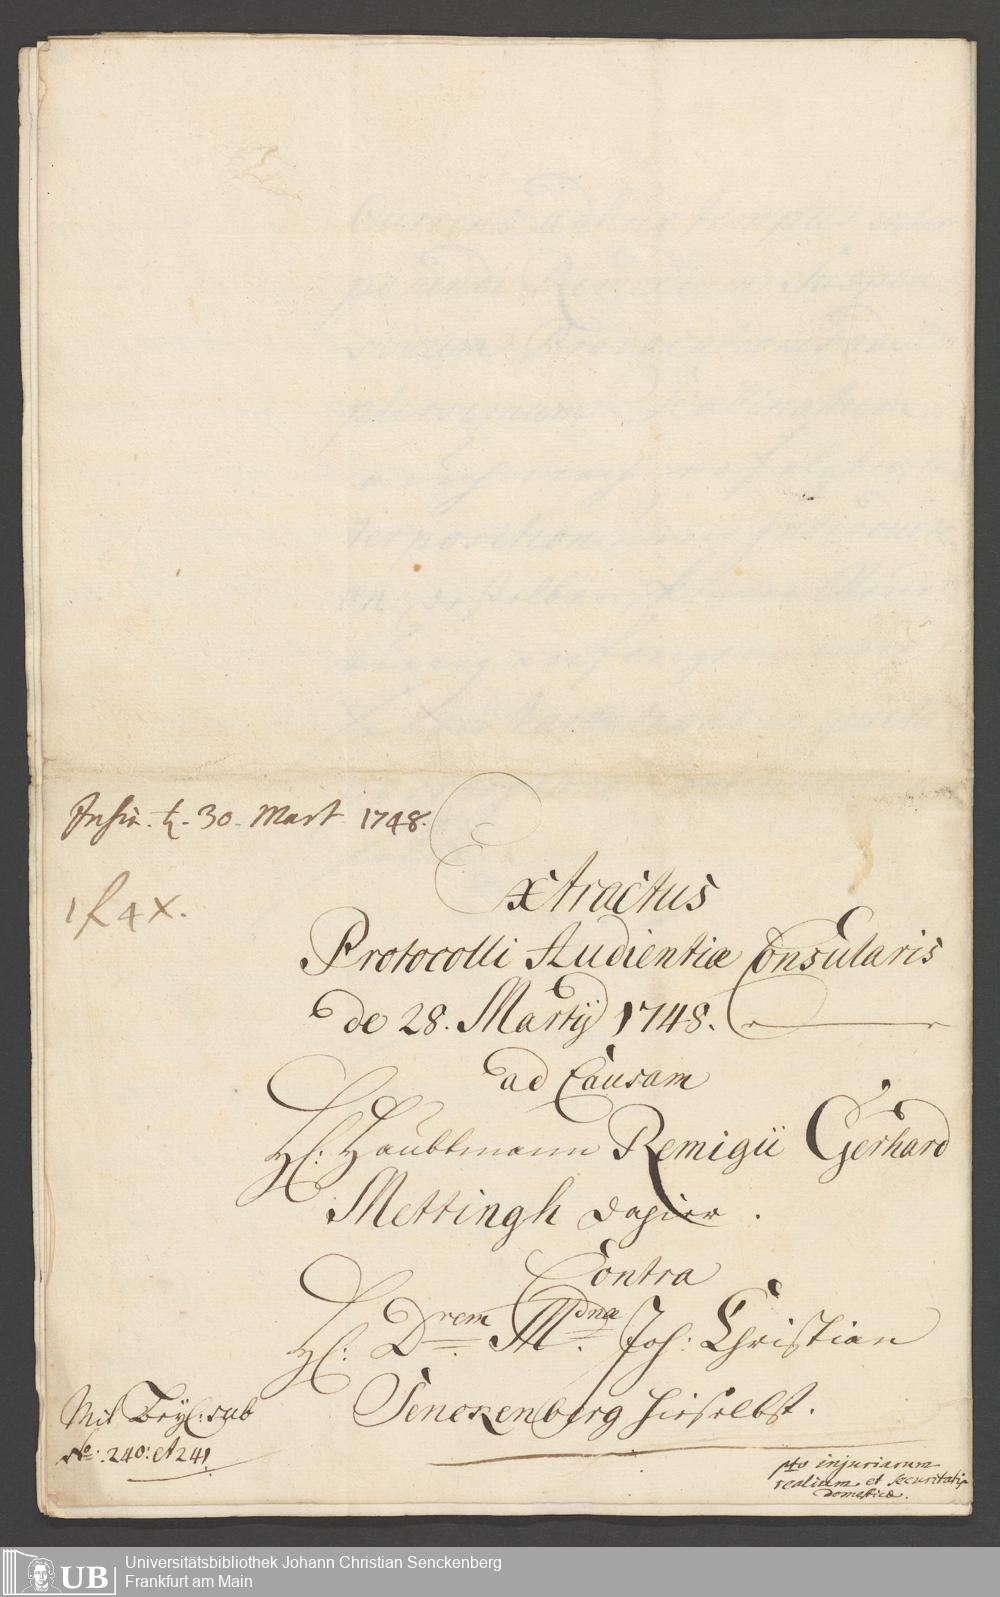 Insin. ♄. 30. Mart 1748.
1 f 4 X.
Extractus
Protocolli Audientiæ Consularis
de 28. Martij 1748.
ad Causam
H: Haubtmann Remigii Gerhard
Mettingh dahier.
Contra
H: Drem Mdnæ Joh: Christian
Senckenberg hieselbst.
Mit Beyl: sub
No: 240: et 241
pto injuriarum
realium et securitatis
domesticæ.
UB
Universitätsbibliothek Johann Christian Senckenberg
Frankfurt am Main